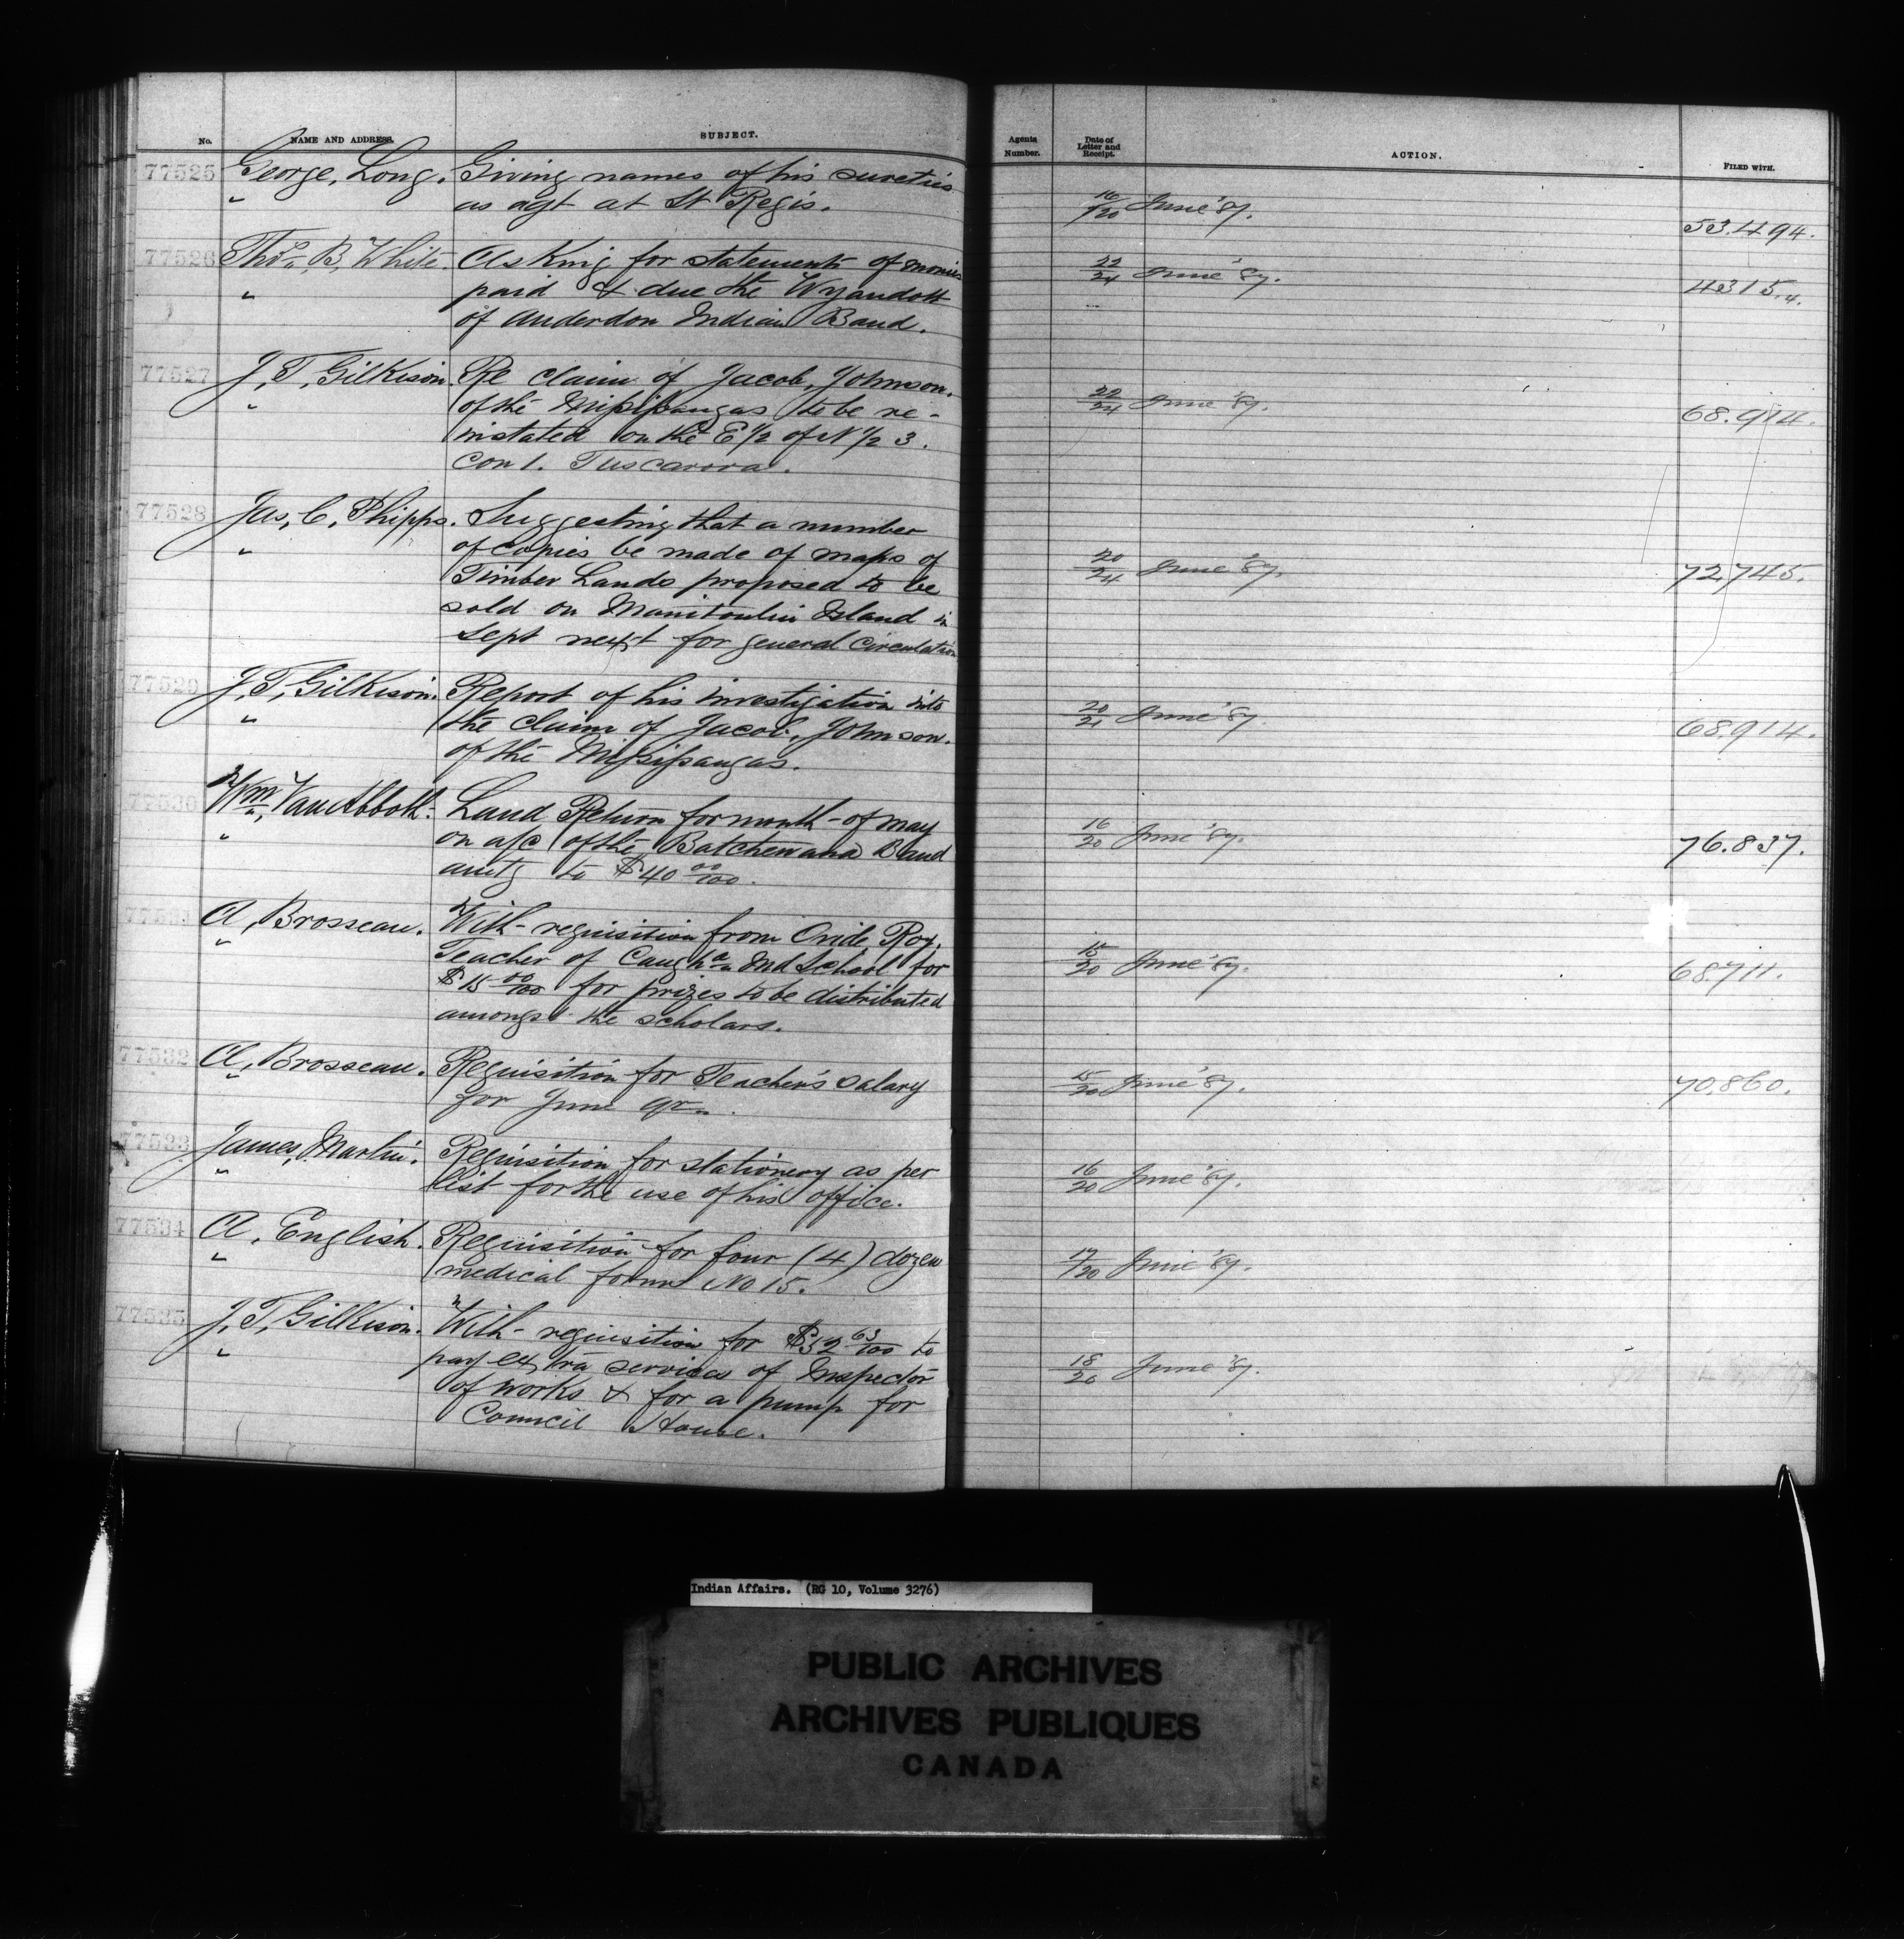 No. NAME AND ADDRESS. SUBJECT.
77525 George, Long. Giving names of his sureties
" as agt at St Regis.
77526 Thos, B, White. Asking for statement of monies
" paid & due the Wyandott
of Anderdon Indian Band.
77527 J, T, Gilkison. Re claim of Jacob, Johnson.
" of the Missisaugas to be re-
instated on the E 1/2 of N 1/2 3.
Con 1. Tuscarora.
77528 Jas, C, Phipps. Suggesting that a number
" of copies be made of maps of
Timber Lands proposed to be
sold on Manitoulin Island in
Sept next for general circulation
77529 J, T, Gilkison. Report of his investigation into
" the claim of Jacob, Johnson.
of the Missisaugas.
77530 Wm, Van Abbott. Land Return for month of May
" on a/c of the Batchewana Band
amtg to $40 00/100.
77531 A, Brosseau. With requisition from Ovide, Roy,
" Teacher of Caugha Ind School for
$15 00/100 for prizes to be distributed
amongst the scholars.
77532 A, Brosseau. Requisition for Teacher's salary
" for June qr.
77533 James, Martin. Requisition for stationery as per
" list for the use of his office.
77534 A, English. Requisition for four (4) dozen
" medical forms No 15.
77535 J, T, Gilkison. With requisition for $32 63/100 to
" pay extra services of Inspector
of works & for a pump for
Council House.
Agents Number. Date of Letter and Receipt. ACTION. FILED WITH.
16/20 June '87. 53.494.
22/24 June '87. 4315.4.
22/24 June '87. 68.914.
20/24 June '87. 72,745.
20/21 June '87. 68,914.
16/20 June '87. 76.837.
15/20 June '87. 68711.
15/20 June '87. 70,860.
16/20 June '87.
17/20 June '87.
18/20 June '87.
Indian Affairs. (RG 10, Volume 3276)
PUBLIC ARCHIVES
ARCHIVES PUBLIQUES
CANADA